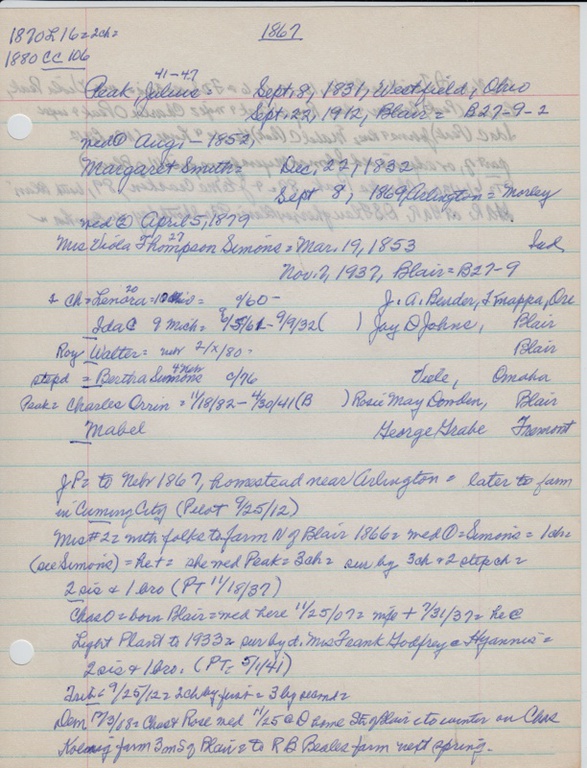 1870 L 16 = 2ch =
1867
1880 CC 106
41-47
Peak, Julius = Sept. 8, 1831, Westfield, Ohio
Sept. 22, 1912, Blair = B27-9-2
med ① Aug, - 1852,
Margaret Smith = Dec, 22, 1832
Sept 8, 1869 Arlington = Morley
med ② April 5, 1879
27
Mrs Viola Thompson Simons = Mar. 19, 1853 Ind
Nov. 7, 1937, Blair = B27-9
2 ch = Lenora = 10 Ohio = 9/60 - J. A. Bender, Knappa, Ore
20
Ida C 9 Mich = 6/5/61 - 9/9/32 ( ) Jay D Johns, Blair
Roy Walter = neb 2/x/80 = Blair
4 Neb
stepd = Bertha Simons c/76 Viele, Omaha
Peak = Charles Orrin = 11/18/82 - 4/30/41 (B ) Rosie May Dowden, Blair
Mabel George Grabe Fremont
J P = to Nebr 1867, homestead near Arlington = later to farm
in Cuming City (Pilot 9/25/12)
Mrs #2 = with folks to farm N of Blair 1866 = med ① = Simons = 1 ch =
(see Simons) = he + = she med Peak = 3 ch = sur by 3 ch + 2 step ch =
2 sis + 1 bro (PT 11/18/37)
Chas O = born Blair = med here 11/25/07 = wife + 7/31/37 = he @
Light Plant to 1933 = sur by d. Mrs Frank Godfrey = Hyannis =
2 sis + 1 bro. (PT = 5/1/41)
Trib = 9/25/12 = 2 ch by first = 3 by second =
Dem 12/3/08 = Chas + Rose med 11/25 @ D ome of Blair = to winter on Chas
Koenig farm 3 m S of Blair = to R B Beales farm next spring -